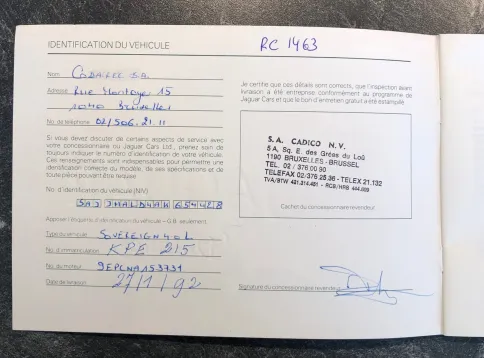 RC 1463
IDENTIFICATION DU VEHICULE
Nom
S.A.
Adresse Rue Montoyer 15
1040 Bruxelles
No. de téléphone 02/506.21.11
Si vous devez discuter de certains aspects de service avec
votre concessionnaire ou Jaguar Cars Ltd., prenez soin de
toujours indiquer le numéro d'identification de votre véhicule.
Ces renseignements sont indispensables pour permettre une
identification correcte du modèle, de ses spécifications et de
toute pièce pouvant être requise.
No. d'identification du véhicule (NIV)
SAJ
Approuver l'étiquette d'identification du véhicule - G.B. seulement.
Type du véhicule SOVEREIGN 4.0L
No. d'immatriculation KPE 215
No. du moteur 9EPCNA153731
Date de livraison 27/1/92
Je certifie que ces détails sont corrects, que l'inspection avant
livraison a été entreprise conformément au programme de
Jaguar Cars et que le bon d'entretien gratuit a été estampillé.
S.A. CADICO N.V.
5A, Sq. E. des Grées du Loû
1190 BRUXELLES - BRUSSEL
TEL. 02 / 376 00 90
TELEFAX 02/376 25 36 - TELEX 21.132
TVA/BTW 431.316.451 - RCB/HRB
Cachet du concessionnaire revendeur
Signature du concessionnaire revendeur